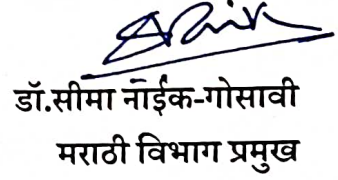 डॉ.सीमा नाईक-गोसावी
मराठी विभाग प्रमुख